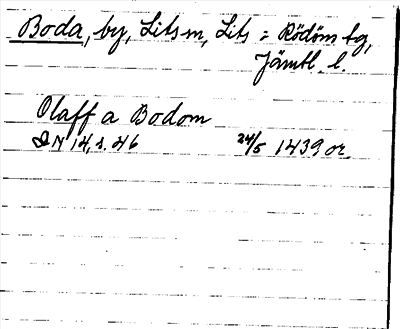 Boda, by, Lits sn, Lits o Rödöns tg,
Jämtl. l.
Olaff a Bodom
DN 14, s. 46 24/5 1439 or.